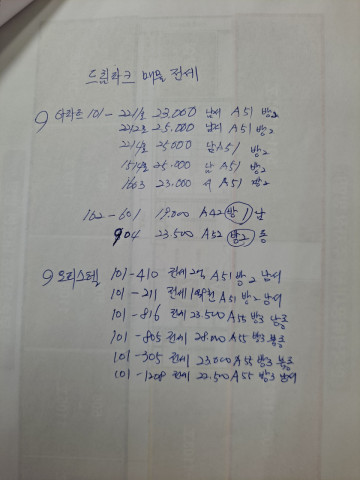 드림파크 매물 전세
9 아파트 101 - 221호 23.000 남서 A51 방2
2212호 25.000 남서 A51 방2
2214호 25000 남 A51 방2
1514호 25.000 남 A51 방2
1663 23.000 A51 방2
102 - 601 19.000 A42 방1 남
904 23.500 A52 방2 동
9 오피스텔 101 - 410 전세 2억 A51 방2 남서
101 - 211 전세 A51 방2 남서
101 - 816 전세 23.500 A55 방3 남동
101 - 805 전세 28.000 A55 방3 북동
101 - 305 전세 23000 A55 방3 북동
101 - 1208 전세 22.500 A55 방3 남서